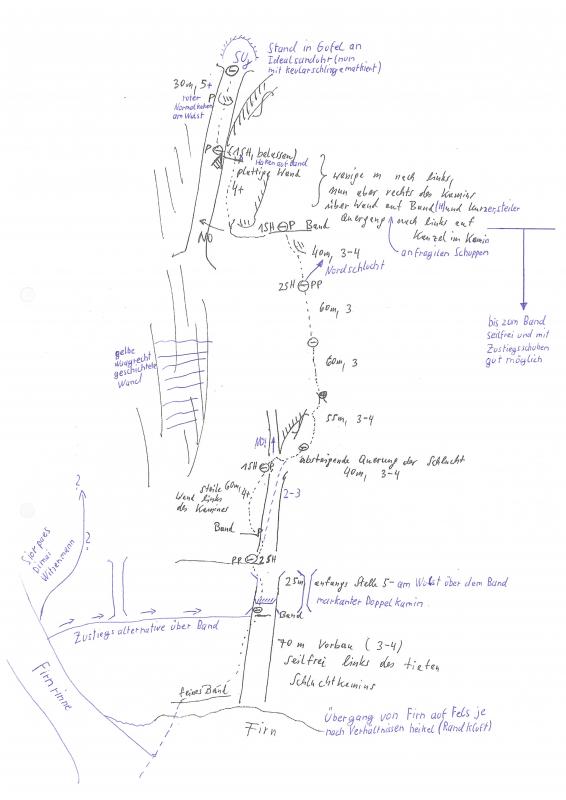 SU
Stand in Gufel an
Idealsanduhr (nun
mit kevlarschlinge markiert)
30m, 5+
roter
Normalhaken
am Wulst
P
P
(1SH, belassen)
Haken auf Band
plattige Wand
4+
wenige m nach links,
nun aber rechts des Kamins
über Wand auf Band (H) und kurzer steiler
Quergang nach links auf
Kanzel im Kamin
an fragilen Schuppen
NO
1SH P Band
40m, 3-4
Nordschlucht
2SH PP
60m, 3
bis zum Band
seilfrei und mit
Zustiegsschuhen
gut möglich
gelbe
waagrecht
geschichtete
Wand
60m, 3
55m, 3-4
NO!
absteigende Querung der Schlucht
40m, 3-4
1SH P
steile 60m, 4+
Wand links
des Kamines
2-3
Band
P
PP 2SH
?
?
Sjorpaes
Dimai
Witzenmann
25m
anfangs Stelle 5- am Wulst über dem Band
markanter Doppelkamin
Band
Zustiegsalternative über Band
70m Vorbau (3-4)
seilfrei links des tiefen
Schluchtkamins
Firnrinne
Band
Firn
Übergang von Firn auf Fels je
nach Verhältnissen heikel (Randkluft)